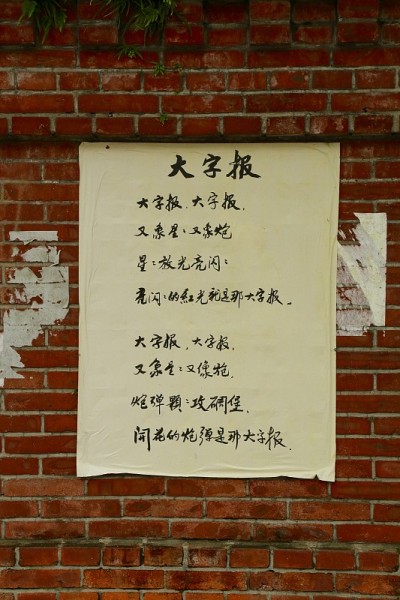 大字报
大字报、大字报,
又象星:又象炮
星:放光亮闪:
亮闪:的紅光就是那大字报。
大字报,大字报,
又象星:又像炮,
炮弹顆:攻碉堡.
開花的炮弹是那大字报.